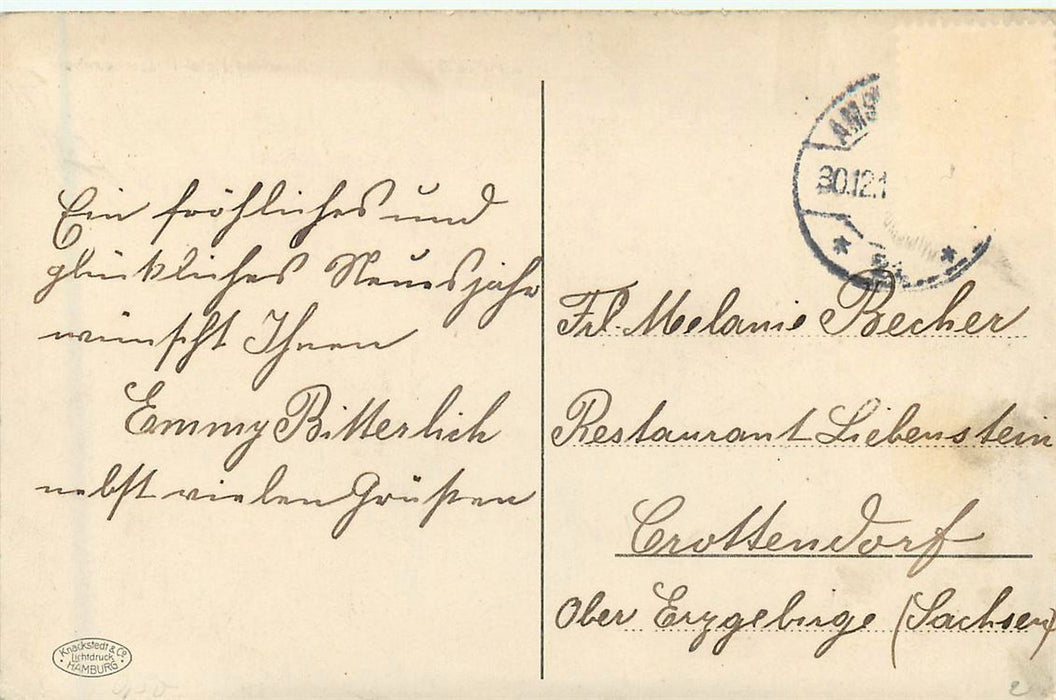 Ein fröhliches und
glückliches Neuesjahr
wünscht Ihnen
Emmy Bitterlich
nebst vielen Grüßen
Knackstedt & Co
Lichtdruck
HAMBURG
30.12.1
Frl. Melanie Becher
Restaurant Liebenstein
Crottendorf
Ober Erzgebirge (Sachsen)